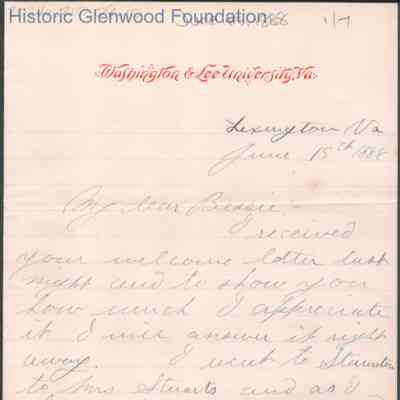 Historic Glenwood Foundation
1/7
Washington & Lee University, Va.
Lexington Va
June 15th 1888
My dear Bessie -
I received
your welcome letter last
night and to show you
how much I appreciate
it I will answer it right
away. I went to Staunton
to Mrs Stuarts and as I